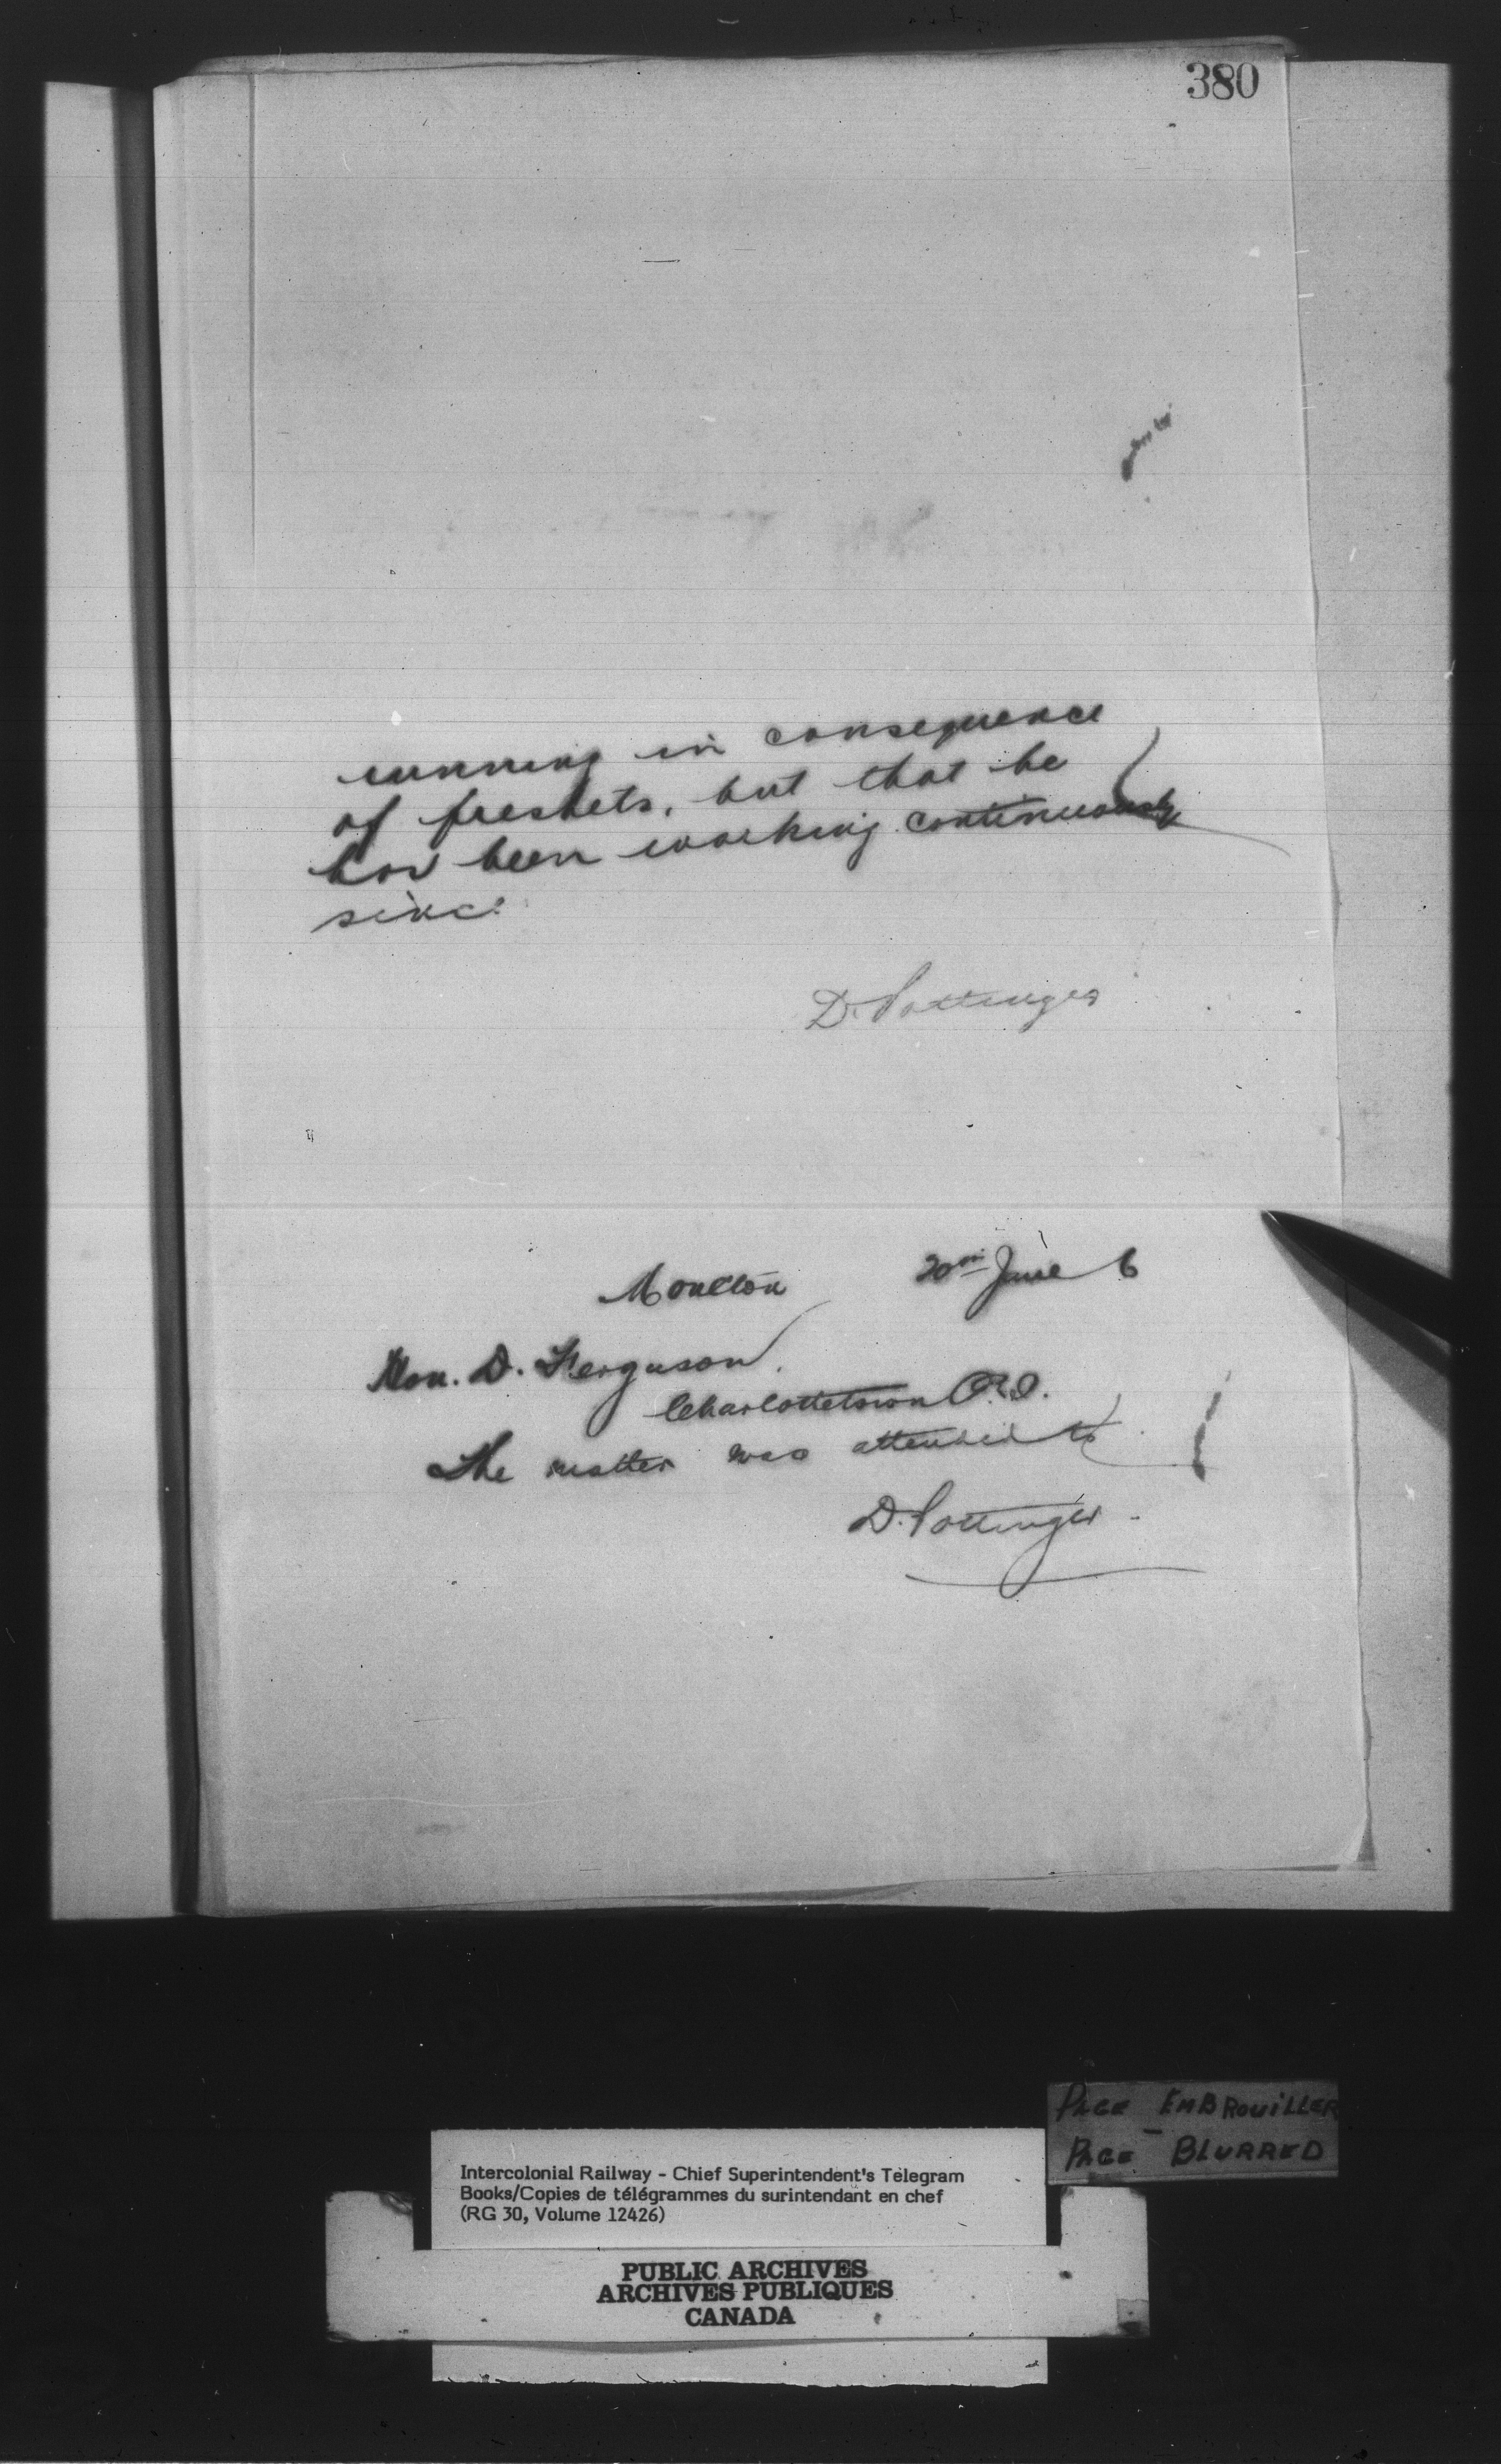 380
running in consequence
of freshets, but that he
has been working continuously
since
D. Pottinger
Moncton 20th June 6
Hon. D. Ferguson,
Charlottetown P.E.I.
The matter was attended to
D. Pottinger
PAGE EMBROUILLER
PAGE BLURRED
Intercolonial Railway - Chief Superintendent's Telegram
Books/Copies de télégrammes du surintendant en chef
(RG 30, Volume 12426)
PUBLIC ARCHIVES
ARCHIVES PUBLIQUES
CANADA